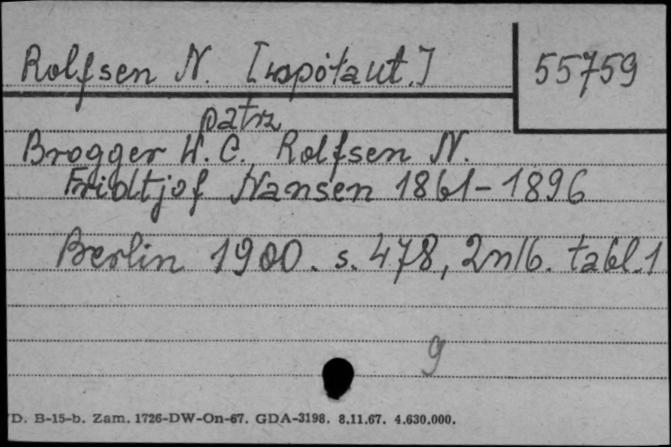 Rolfsen N. [współaut.]
55759
patrz
Brogger W. C. Rolfsen N.
Fridtjof Nansen 1861-1896
Berlin 1900. s. 478, 2nlb. tabl. 1
9
D. B-15-b. Zam. 1726-DW-On-67. GDA-3198. 8.11.67. 4.630.000.